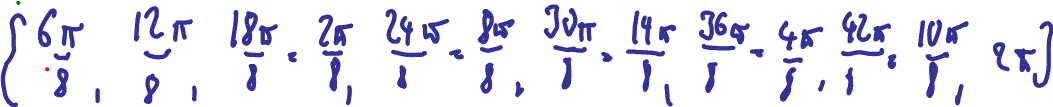 { 6π/8, 12π/8, 18π/8 = 2π/8, 24π/8 = 8π/8, 30π/8 = 14π/8, 36π/8 = 4π/8, 42π/8 = 10π/8, 2π }